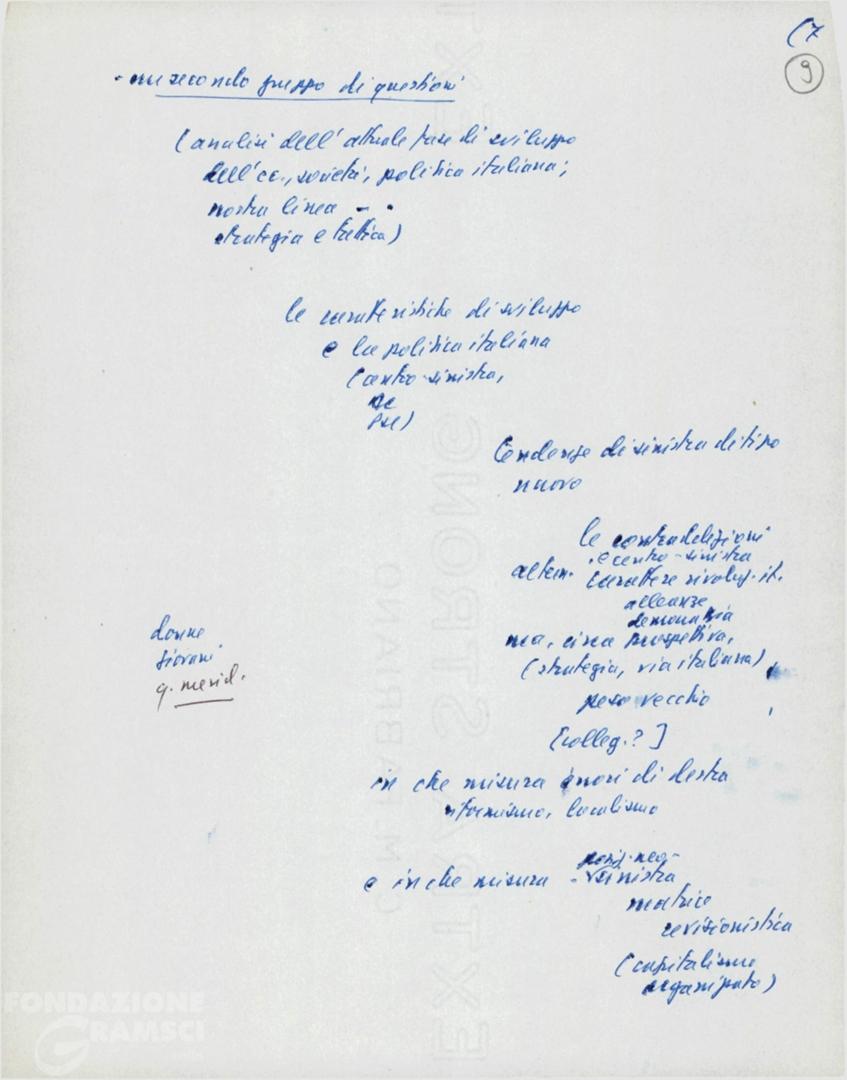 (7
9
- un secondo gruppo di questioni
(analisi dell'attuale fase di sviluppo
dell'ec., società, politica italiana;
nostra linea - -
strategia e tattica)
le caratteristiche di sviluppo
e la politica italiana
(centro-sinistra,
DC
PSU)
tendenze di sinistra di tipo
nuovo
le contraddizioni
e centro-sinistra
altern. carattere rivoluz. it.
alleanze
democrazia
ma, circa prospettiva,
(strategia, via italiana)
peso vecchio
[colleg.?]
donne
giovani
q. merid.
in che misura errori di destra
riformismo, localismo
e in che misura - posiz. neo-
sinistra
matrice
revisionistica
(capitalismo
organizzato)
FONDAZIONE
GRAMSCI
C.M. FABRIANO
EXTRA STRONG
EX